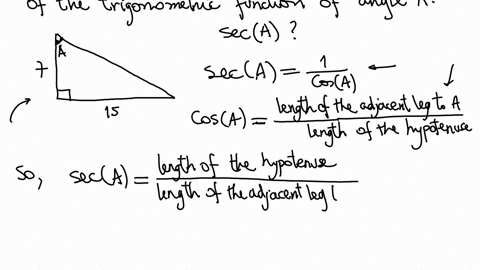 of the trigonometric function of angle A.
sec(A)?
A
7
15
sec(A) = 1 / cos(A)
cos(A) = length of the adjacent leg to A / length of the hypotenuse
So, sec(A) = length of the hypotenuse / length of the adjacent leg (